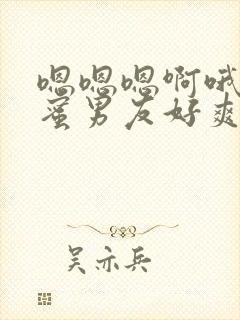 嗯嗯嗯啊哦
蜜男友好爽
吴亦兵